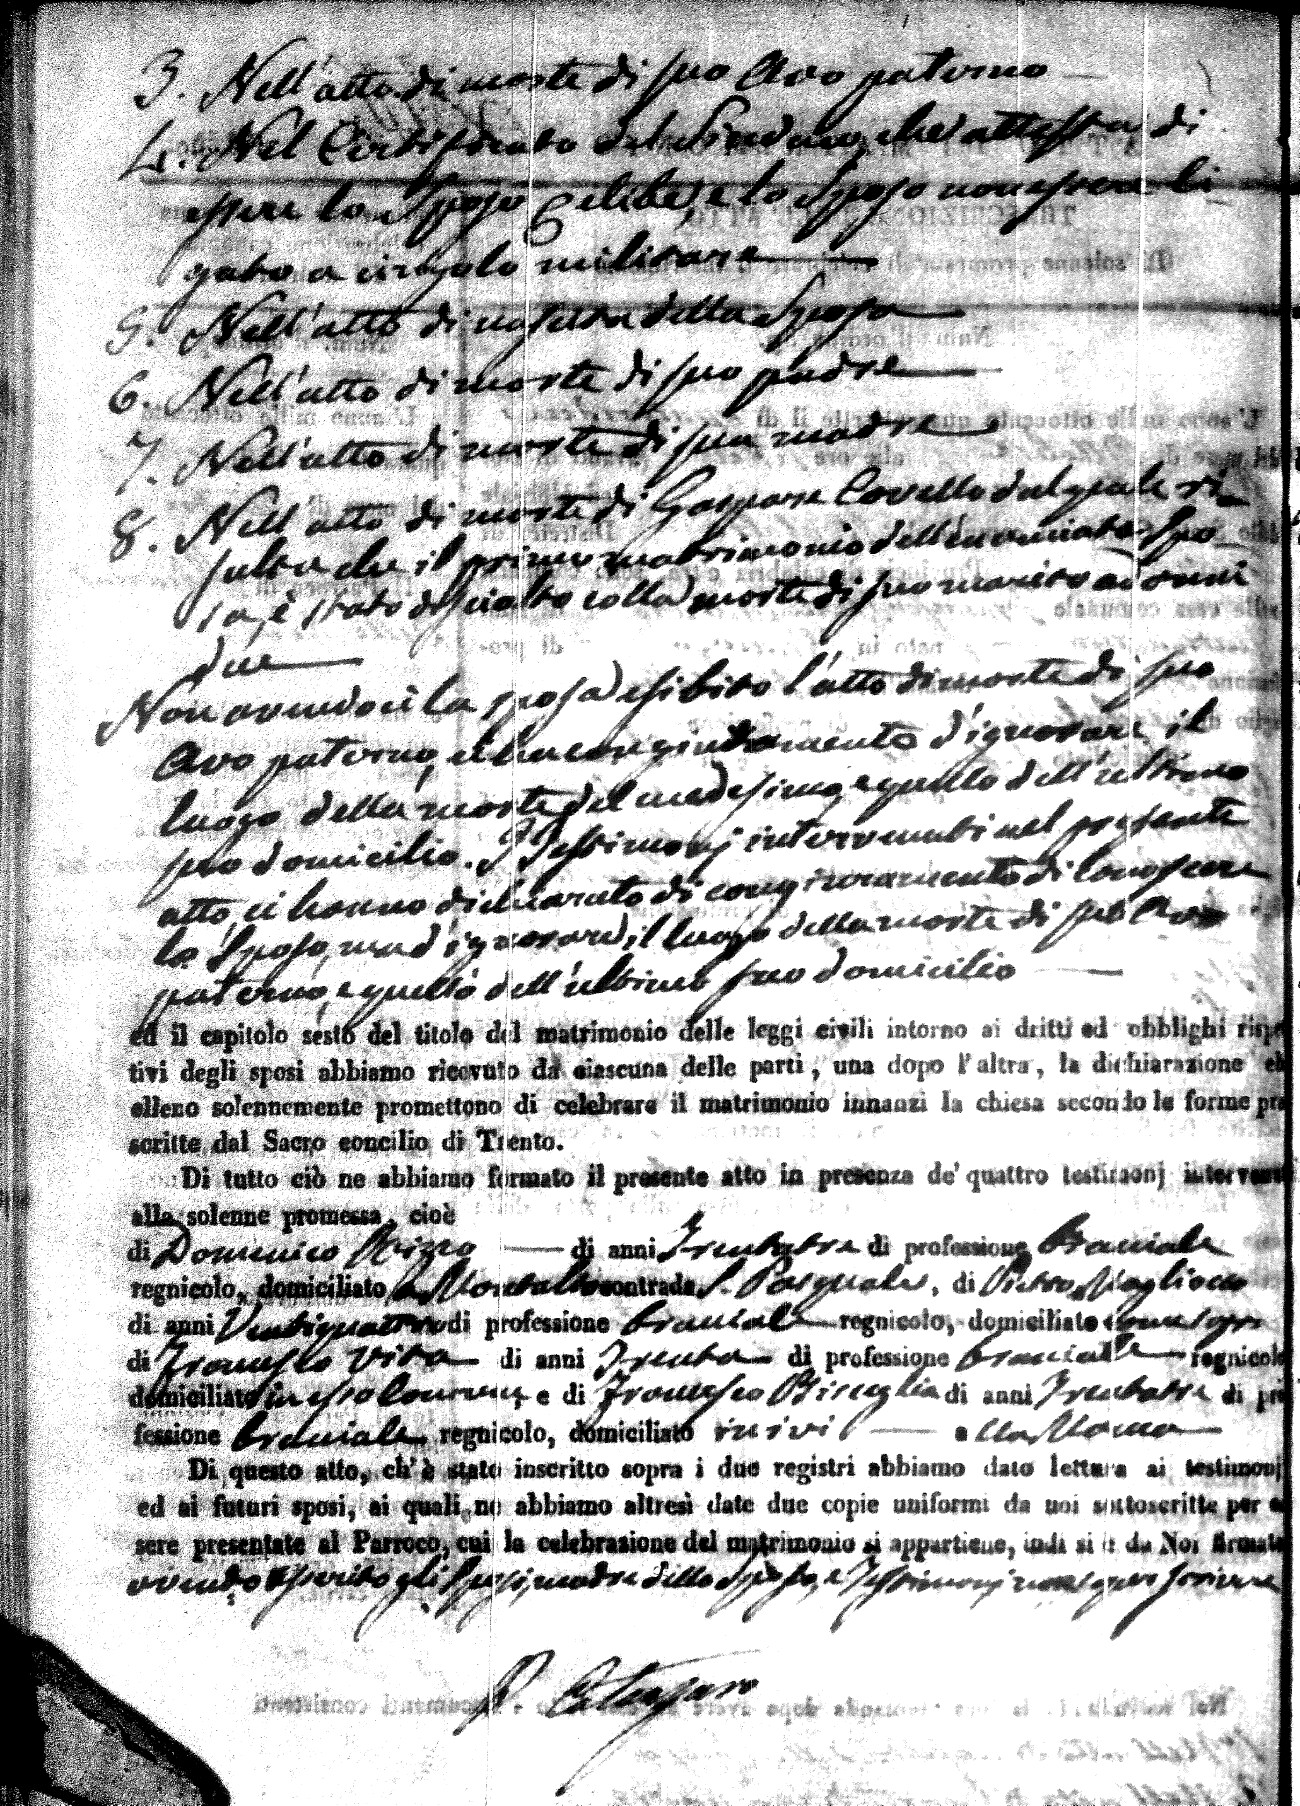 3. Nell'atto di morte di suo Avo paterno
4. Nel Certificato del Sindaco, che attesta di
essere lo Sposo Celibe, e lo Sposo non essere li
gato a circolo militare
5. Nell'atto di nascita della Sposa
6. Nell'atto di morte di suo padre
7. Nell'atto di morte di sua madre
8. Nell'atto di morte di Gaspare Covello dal quale ri
sulta che il primo matrimonio dell'enunciata Spo
sa, è stato disciolto colla morte di suo marito
due
Non avendoci la sposa esibito l'atto di morte di suo
Avo paterno, ci ha con giuramento d'ignorare il
luogo della morte del medesimo, e quello dell'ultimo
suo domicilio. I Testimonj intervenuti nel presente
atto, ci hanno dichiarato di con giuramento di conoscere
lo Sposo, ma d'ignorare, il luogo della morte di suo Avo
paterno, e quello dell'ultimo suo domicilio
ed il capitolo sesto del titolo del matrimonio delle leggi civili intorno ai dritti ed obblighi rispe
tivi degli sposi abbiamo ricevuto da ciascuna delle parti, una dopo l'altra, la dichiarazione ch
elleno solennemente promettono di celebrare il matrimonio innanzi la chiesa secondo le forme pre
scritte dal Sacro concilio di Trento.
Di tutto ciò ne abbiamo formato il presente atto in presenza de' quattro testimonj intervenuti
alla solenne promessa, cioè
di Domenico Rizzo di anni Trentatre di professione Braciale
regnicolo, domiciliato a Montalto contrada S. Pasquale, di Pietro
di anni Ventiquattro di professione braciale regnicolo, domiciliato come sopra
di Francesco Vita di anni Trenta di professione braciale regnicolo
domiciliato in esso Comune, e di Francesco Bisceglia di anni Trentatre di pro
fessione braciale, regnicolo, domiciliato ivi
Di questo atto, ch'è stato inscritto sopra i due registri abbiamo dato lettura ai testimonj
ed ai futuri sposi, ai quali ne abbiamo altresì date due copie uniformi da noi sottoscritte per es
sere presentate al Parroco, cui la celebrazione del matrimonio si appartiene, indi si è da Noi firmato
avendo asserito gli Sposi, madre dello Sposo, e Testimonj non saper scrivere